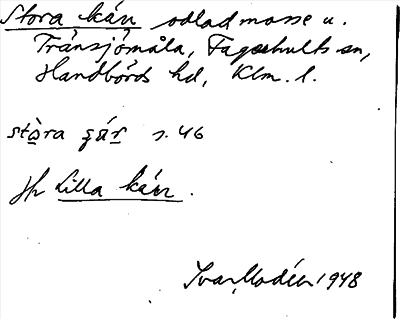 Stora kärr odlad mosse u.
Tränsjömåla, Fagerhults sn,
Handbörds hd, Klm. l.
stòra ɕär s. 46
Jfr Lilla kärr.
Ivar Modéer 1948